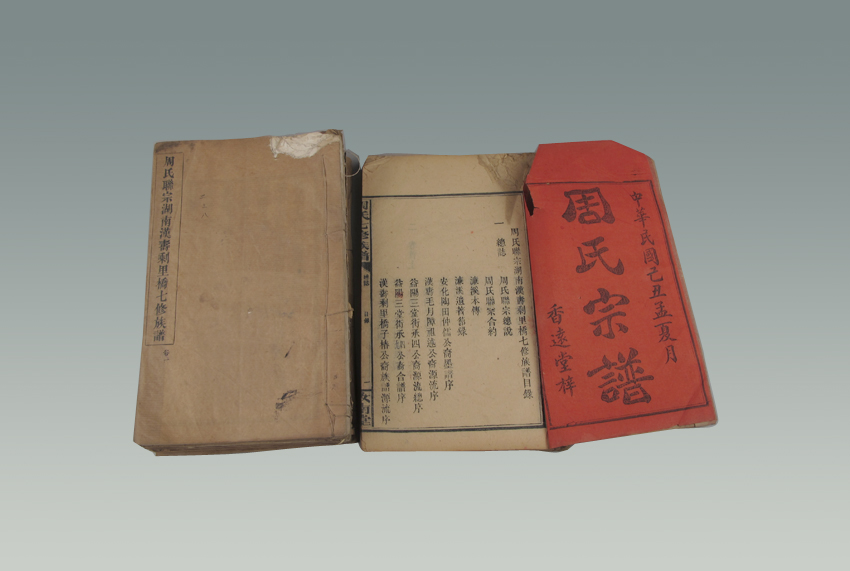 中華民國己丑孟夏月
周氏宗譜
香遠堂梓
周氏聯宗湖南漢壽剩里橋七修族譜目錄
一 總誌
周氏聯宗總說
周氏聯宗合約
濂溪本傳
濂溪遺著節錄
安化陶田仲儒公裔墨譜序
漢壽毛月障祖遜公裔源流序
益陽三堂街承四公裔源流總序
益陽三堂街承 公裔合譜序
漢壽剩里橋子椿公裔族譜源流序
周氏七修族譜
總誌
目錄
一
周氏聯宗湖南漢壽剩里橋七修族譜
卷